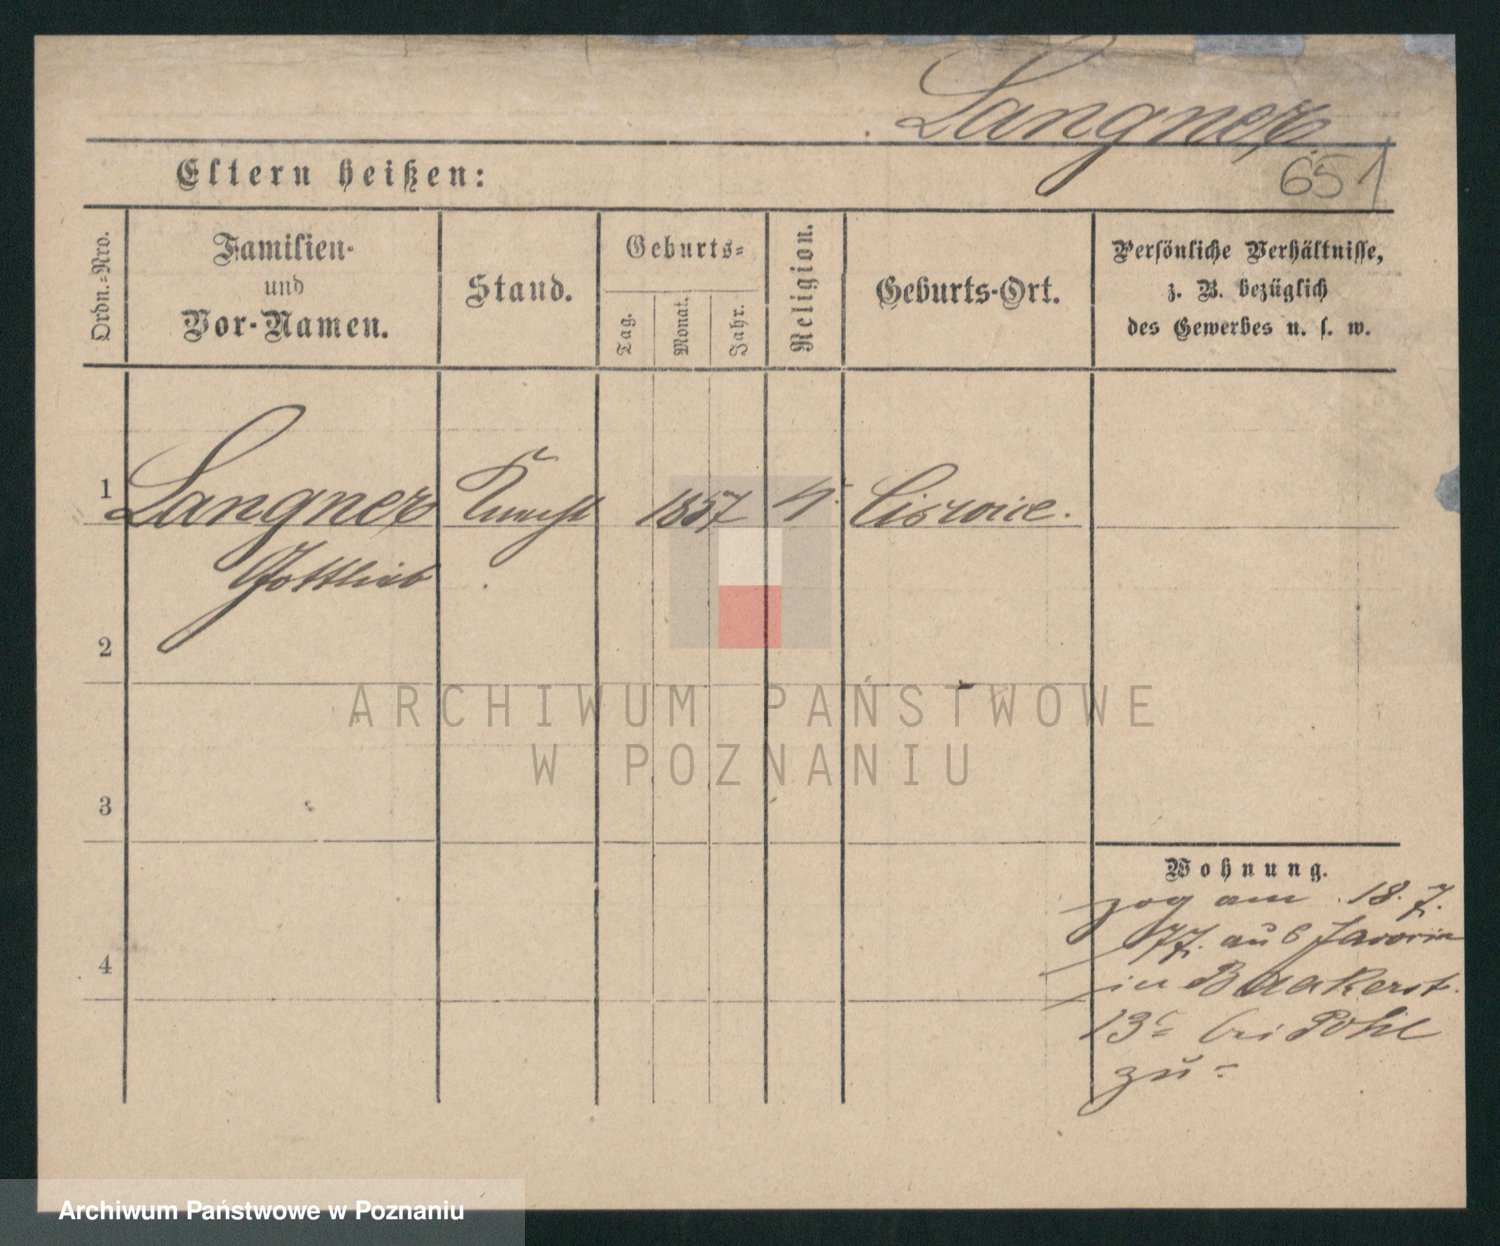 Langner.
651
Eltern heißen:
Ordn.-Nro.
Familien-
und
Vor-Namen.
Stand.
Geburts-
Tag.
Monat.
Jahr.
Religion.
Geburts-Ort.
Persönliche Verhältnisse,
z. B. bezüglich
des Gewerbes u. s. w.
1
Langner
Knecht
1857
Gottlieb
2
3
4
ARCHIWUM PAŃSTWOWE
W POZNANIU
Wohnung.
zog am 18. 7.
77. aus
in Baakerst.
13c bei Pohl
zu
Archiwum Państwowe w Poznaniu